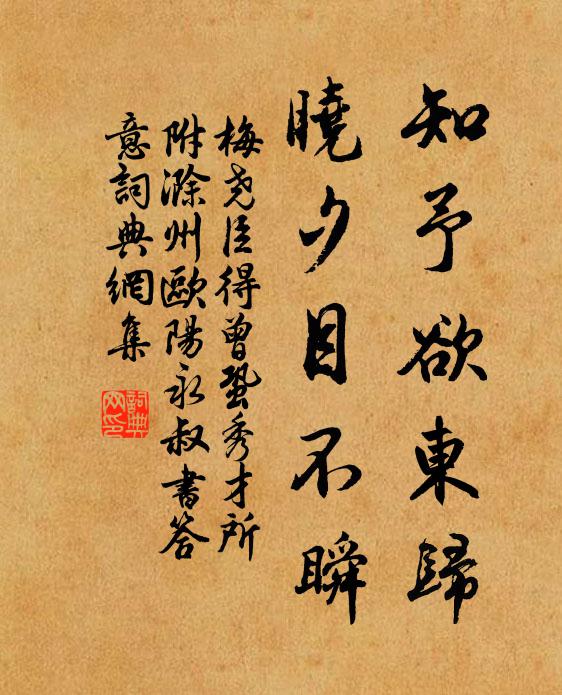 知予欲東歸
曉夕目不瞬
梅堯臣得曾鞏秀才所
附滁州歐陽永叔書答
意詞典網集
詞典
网印